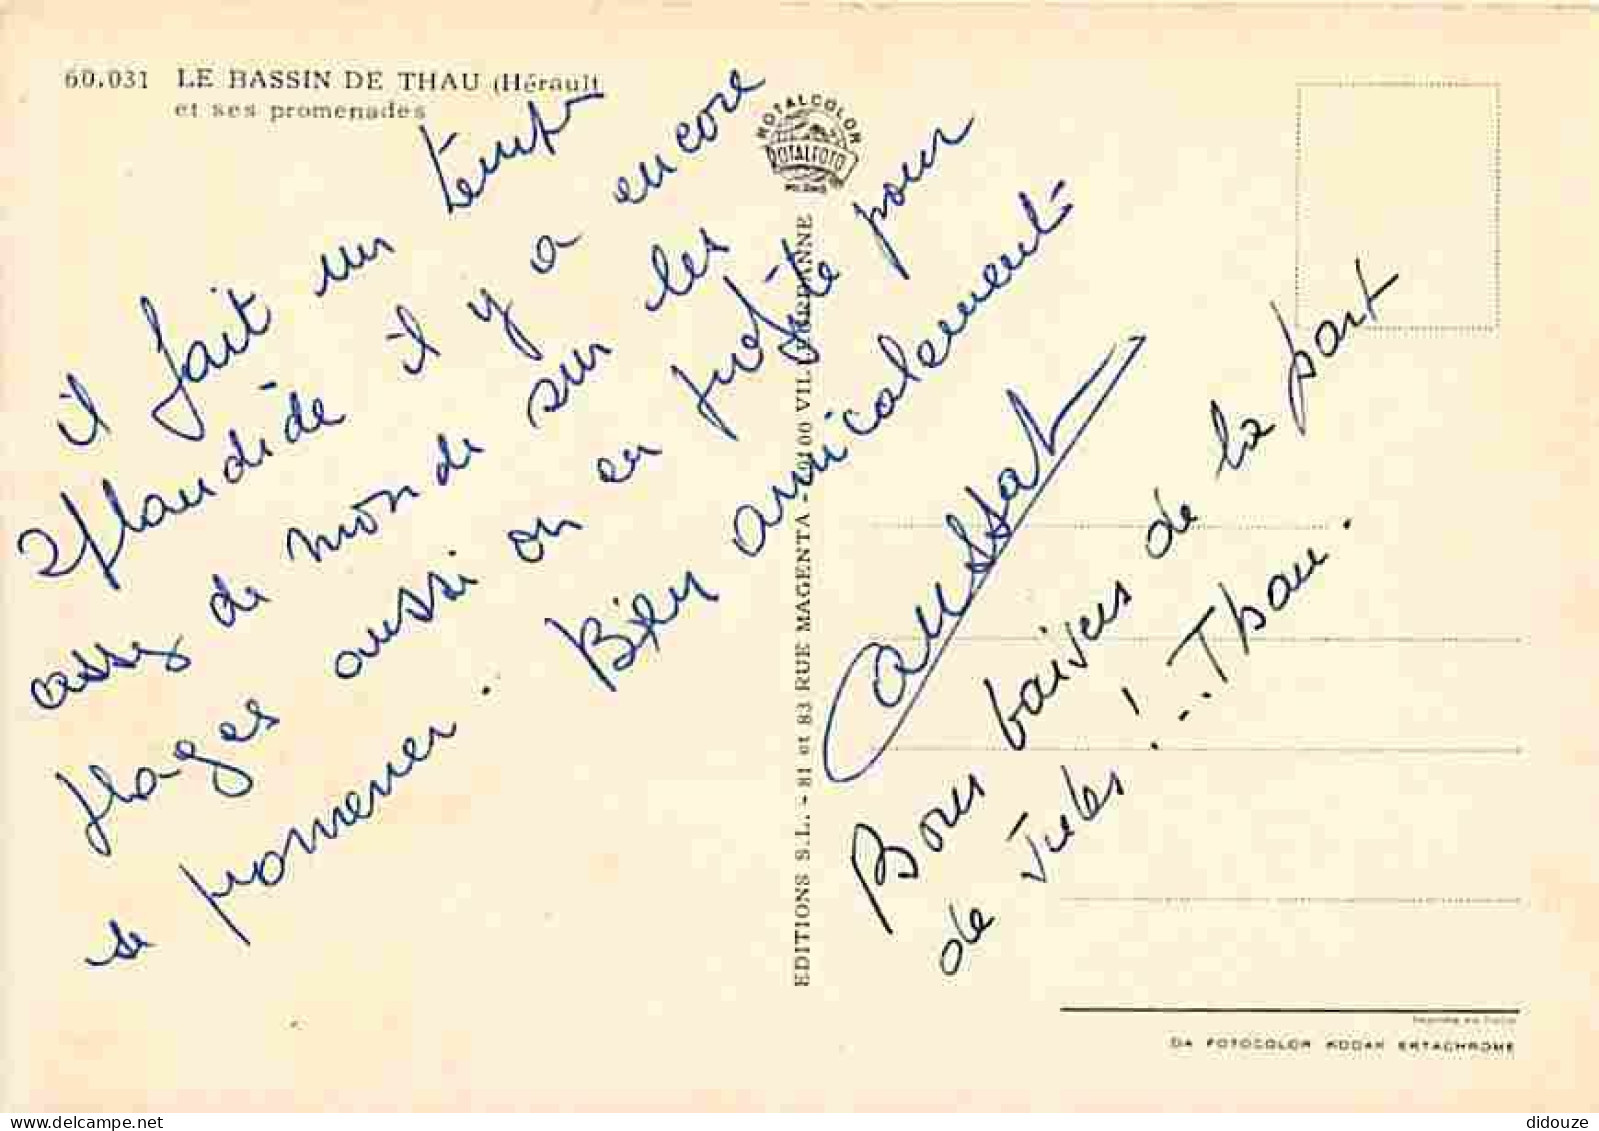 60.031 LE BASSIN DE THAU (Hérault
et ses promenades
il fait un temps
splandide il y a encore
assez de monde sur les
plages aussi on en profite pour
se promener. Bien amicalement
Bons baisers de la part
de Jules !... Thau.
ROTALCOLOR
ROTALFOTO
MILANO
EDITIONS S.L. - 81 et 83 RUE MAGENTA - 69100 VILLEURBANNE
Imprimé en Italie
DA FOTOCOLOR KODAK EKTACHROME
didouze